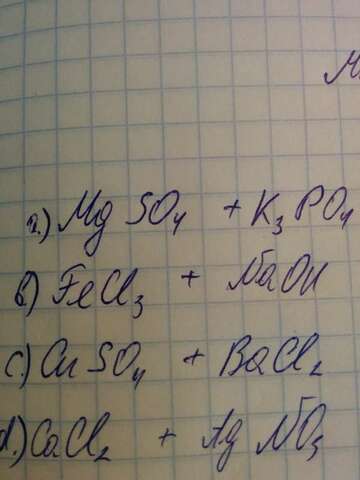 a.) MgSO4 + K3PO4
b) FeCl3 + NaOH
c.) CuSO4 + BaCl2
d.) CaCl2 + AgNO3